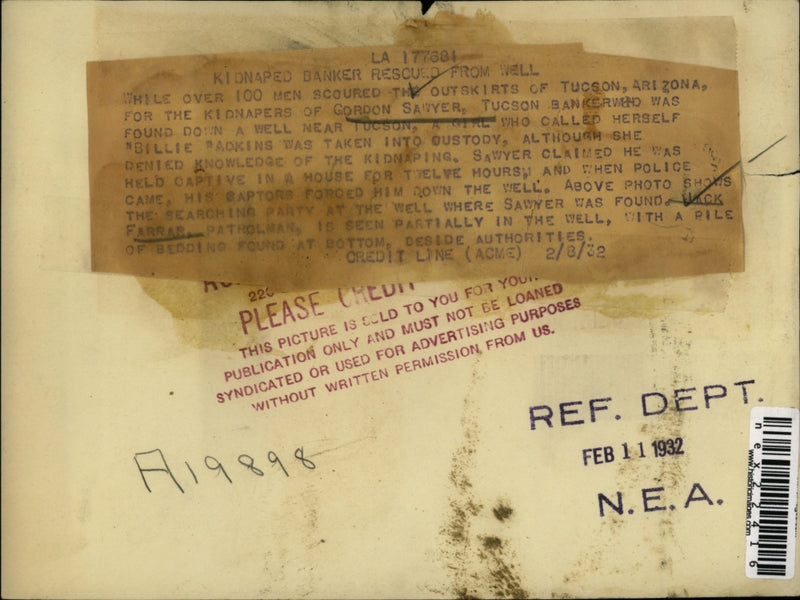 LA 177881
KIDNAPED BANKER RESCUED FROM WELL
WHILE OVER 100 MEN SCOURED THE OUTSKIRTS OF TUCSON, ARIZONA,
FOR THE KIDNAPERS OF GORDON SAWYER, TUCSON BANKER WHO WAS
FOUND DOWN A WELL NEAR TUCSON, A GIRL WHO CALLED HERSELF
"BILLIE "ADKINS WAS TAKEN INTO CUSTODY, ALTHOUGH SHE
DENIED KNOWLEDGE OF THE KIDNAPING. SAWYER CLAIMED HE WAS
HELD CAPTIVE IN A HOUSE FOR TWELVE HOURS, AND WHEN POLICE
CAME, HIS CAPTORS FORCED HIM DOWN THE WELL. ABOVE PHOTO SHOWS
THE SEARCHING PARTY AT THE WELL WHERE SAWYER WAS FOUND. JACK
FARRAR, PATROLMAN, IS SEEN PARTIALLY IN THE WELL, WITH A PILE
OF BEDDING FOUND AT BOTTOM, BESIDE AUTHORITIES.
CREDIT LINE (ACME) 2/8/32
220
PLEASE CREDIT
THIS PICTURE IS SOLD TO YOU FOR YOUR
PUBLICATION ONLY AND MUST NOT BE LOANED
SYNDICATED OR USED FOR ADVERTISING PURPOSES
WITHOUT WRITTEN PERMISSION FROM US.
REF. DEPT.
FEB 11 1932
N.E.A.
A19898
nex22416
www.historicimages.com